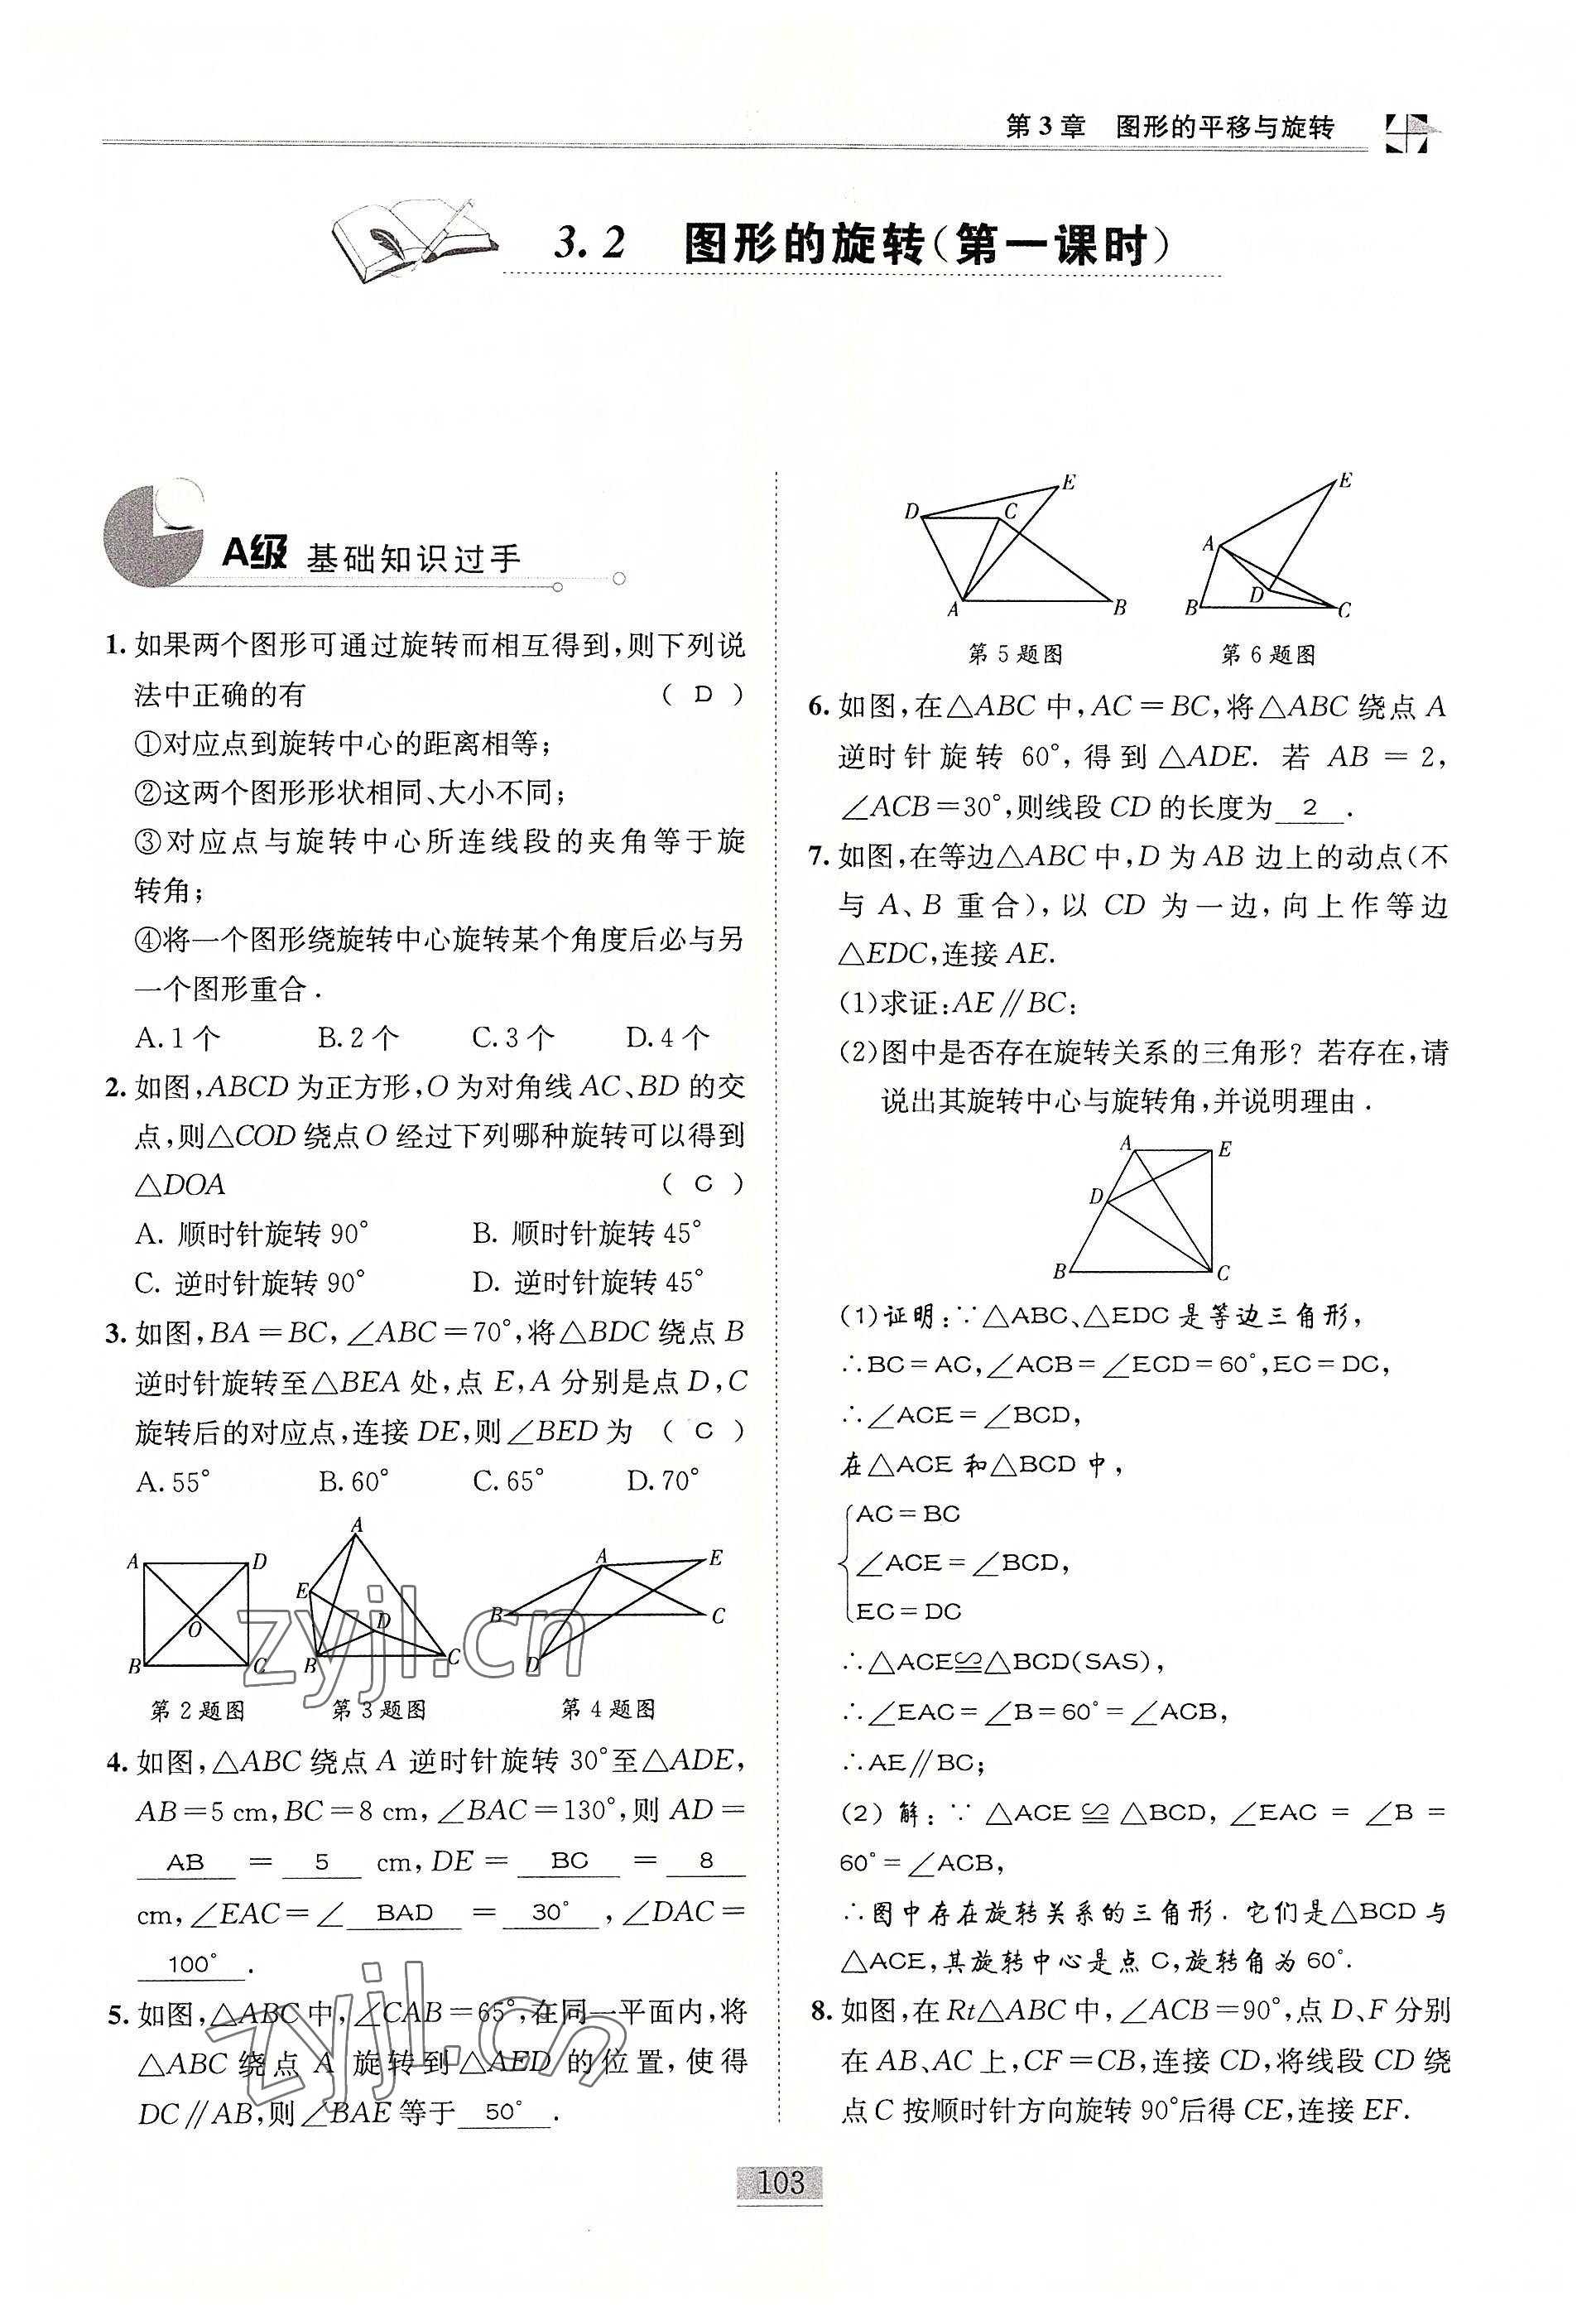 第3章 图形的平移与旋转
3.2 图形的旋转(第一课时)
A级 基础知识过手
1. 如果两个图形可通过旋转而相互得到,则下列说
法中正确的有 ( D )
①对应点到旋转中心的距离相等;
②这两个图形形状相同、大小不同;
③对应点与旋转中心所连线段的夹角等于旋
转角;
④将一个图形绕旋转中心旋转某个角度后必与另
一个图形重合.
A.1个 B.2个 C.3个 D.4个
2. 如图,ABCD为正方形,O为对角线AC、BD的交
点,则△COD绕点O经过下列哪种旋转可以得到
△DOA ( C )
A. 顺时针旋转90° B. 顺时针旋转45°
C. 逆时针旋转90° D. 逆时针旋转45°
3. 如图,BA=BC,∠ABC=70°,将△BDC绕点B
逆时针旋转至△BEA处,点E,A分别是点D,C
旋转后的对应点,连接DE,则∠BED为 ( C )
A.55° B.60° C.65° D.70°
A D O B C
A E D B C
A E B C D
第2题图 第3题图 第4题图
4. 如图,△ABC绕点A逆时针旋转30°至△ADE,
AB=5 cm,BC=8 cm,∠BAC=130°,则AD=
AB = 5 cm,DE= BC = 8
cm,∠EAC=∠ BAD = 30° ,∠DAC=
100° .
5. 如图,△ABC中,∠CAB=65°,在同一平面内,将
△ABC绕点A旋转到△AED的位置,使得
DC∥AB,则∠BAE等于 50° .
D C E A B
E A D B C
第5题图 第6题图
6. 如图,在△ABC中,AC=BC,将△ABC绕点A
逆时针旋转60°,得到△ADE. 若AB=2,
∠ACB=30°,则线段CD的长度为 2 .
7. 如图,在等边△ABC中,D为AB边上的动点(不
与A、B重合),以CD为一边,向上作等边
△EDC,连接AE.
(1)求证:AE∥BC:
(2)图中是否存在旋转关系的三角形?若存在,请
说出其旋转中心与旋转角,并说明理由.
A E D B C
(1)证明:∵△ABC、△EDC是等边三角形,
∴BC=AC,∠ACB=∠ECD=60°,EC=DC,
∴∠ACE=∠BCD,
在△ACE和△BCD中,
AC=BC
∠ACE=∠BCD,
EC=DC
∴△ACE≌△BCD(SAS),
∴∠EAC=∠B=60°=∠ACB,
∴AE∥BC;
(2)解:∵△ACE≌△BCD,∠EAC=∠B=
60°=∠ACB,
∴图中存在旋转关系的三角形. 它们是△BCD与
△ACE,其旋转中心是点C,旋转角为60°.
8. 如图,在Rt△ABC中,∠ACB=90°,点D、F分别
在AB、AC上,CF=CB,连接CD,将线段CD绕
点C按顺时针方向旋转90°后得CE,连接EF.
103
zyjl.cn
zyjl.cn